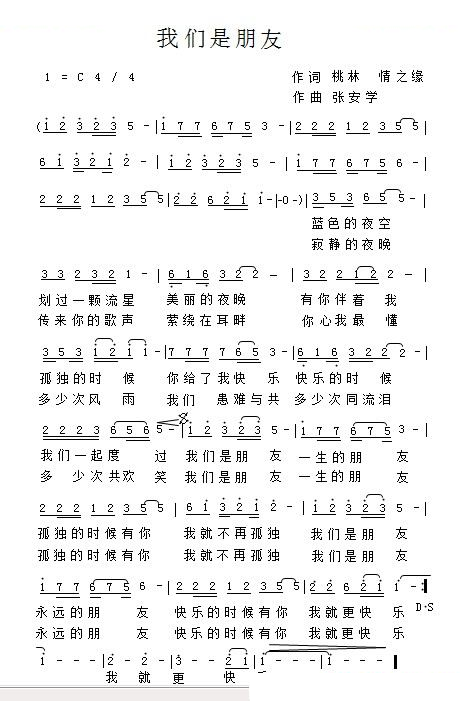 我们是朋友
1 = C 4 / 4 作词 桃林 情之缘
作曲 张安学
(1 2 3 2 3 5 - | 1 7 7 6 7 5 3 - | 2 2 2 1 2 3 5 5 |
6 1 3 2 1 2 - | 1 2 3 2 3 5 - | 1 7 7 6 7 5 6 - |
2 2 2 1 2 3 5 5 | 2 2 6 2 1 1 - | -0 - ) | 3 5 3 6 5 5 - |
蓝色的夜空
寂静的夜晚
3 3 2 3 2 1 - | 6 1 6 3 2 2 - | 3 2 2 1 2 2 - |
划过一颗流星 美丽的夜晚 有你伴着我
传来你的歌声 萦绕在耳畔 你心我最懂
3 5 3 1 2 1 1 - | 7 7 7 7 6 5 3 - | 6 1 6 3 2 2 2 - |
孤独的时候 你给了我快乐 快乐的时候
多少次风雨 我们患难与共 多少次同流泪
2 2 2 2 3 2 3 6 5 6 5 - | 1 2 3 2 3 5 - | 1 7 7 6 7 5 3 - |
我们一起度过 我们是朋友 一生的朋友
多少次共欢笑 我们是朋友 一生的朋友
2 2 2 1 2 3 5 5 | 6 1 3 2 1 2 - | 1 2 3 2 3 5 - |
孤独的时候有你 我就不再孤独 我们是朋友
孤独的时候有你 我就不再孤独 我们是朋友
1 7 7 6 7 5 6 - | 2 2 2 1 2 3 5 5 | 2 2 6 2 1 1 - :|
D·S
永远的朋友 快乐的时候有你 我就更快乐
永远的朋友 快乐的时候有你 我就更快乐
1 - - - | 2 - - 2 | 3 - - 2 1 | 1 - - - | 1 - - - |
我就更快